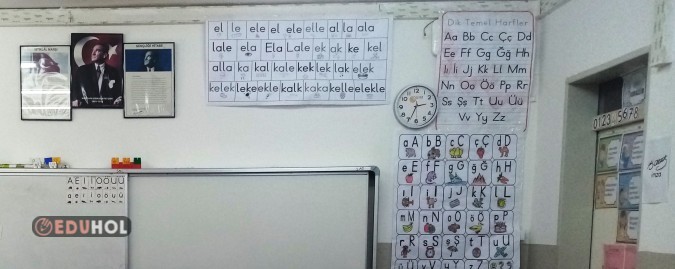 İSTİKLÂL MARŞI
GENÇLİĞE HİTABE
el le ele el ele elle al la ala
lale ela Ela Lale ek ak ke kel
alla ka kal kale kek lek lak elek
kelek lekeekle kalk kaka kelleelekle
Dik Temel Harfler
Aa Bb Cc Çç Dd
Ee Ff Gg Ğğ Hh
Iı İi Jj Kk Ll Mm
Nn Oo Öö Pp Rr
Ss Şş Tt Uu Üü
Vv Yy Zz
aA bB cC çÇ dD
eE fF gG ğĞ hH
ıI iİ jJ kK lL
mM nN oO öÖ pP
rR sS şŞ tT uU
A E I İ O Ö U Ü
a e ı i o ö u ü
EDUHOL